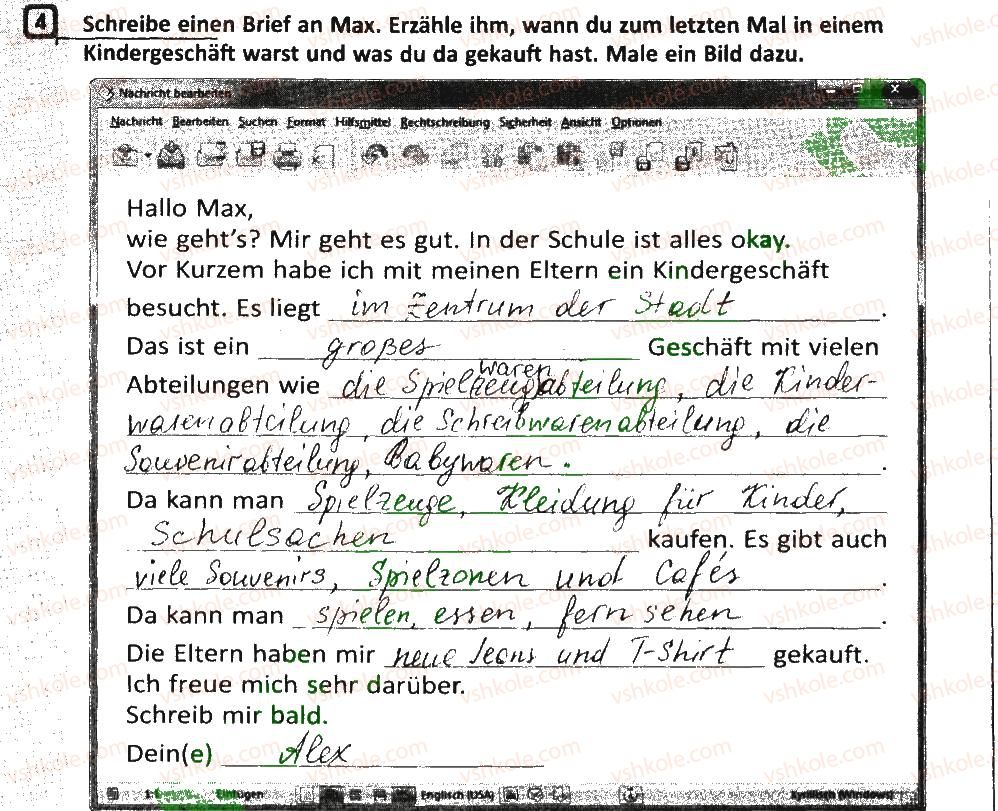 4 Schreibe einen Brief an Max. Erzähle ihm, wann du zum letzten Mal in einem
Kindergeschäft warst und was du da gekauft hast. Male ein Bild dazu.
Nachricht bearbeiten
Nachricht Bearbeiten Suchen Format Hilfsmittel Rechtschreibung Sicherheit Ansicht Optionen
Hallo Max,
wie geht's? Mir geht es gut. In der Schule ist alles okay.
Vor Kurzem habe ich mit meinen Eltern ein Kindergeschäft
besucht. Es liegt im Zentrum der Stadt.
Das ist ein großes Geschäft mit vielen
waren
Abteilungen wie die Spielzeugabteilung, die Kinder-
warenabteilung, die Schreibwarenabteilung, die
Souvenirabteilung, Babywaren.
Da kann man Spielzeuge, Kleidung für Kinder,
Schulsachen kaufen. Es gibt auch
viele Souvenirs, Spielzonen und Cafés.
Da kann man spielen, essen, fern sehen.
Die Eltern haben mir neue Jeans und T-Shirt gekauft.
Ich freue mich sehr darüber.
Schreib mir bald.
Dein(e) Alex
Einfügen Englisch (USA) Kyrillisch (Windows)
vshkole.com